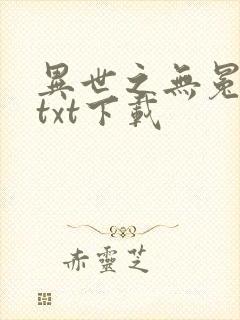 異世之無冕
txt下載
赤靈芝